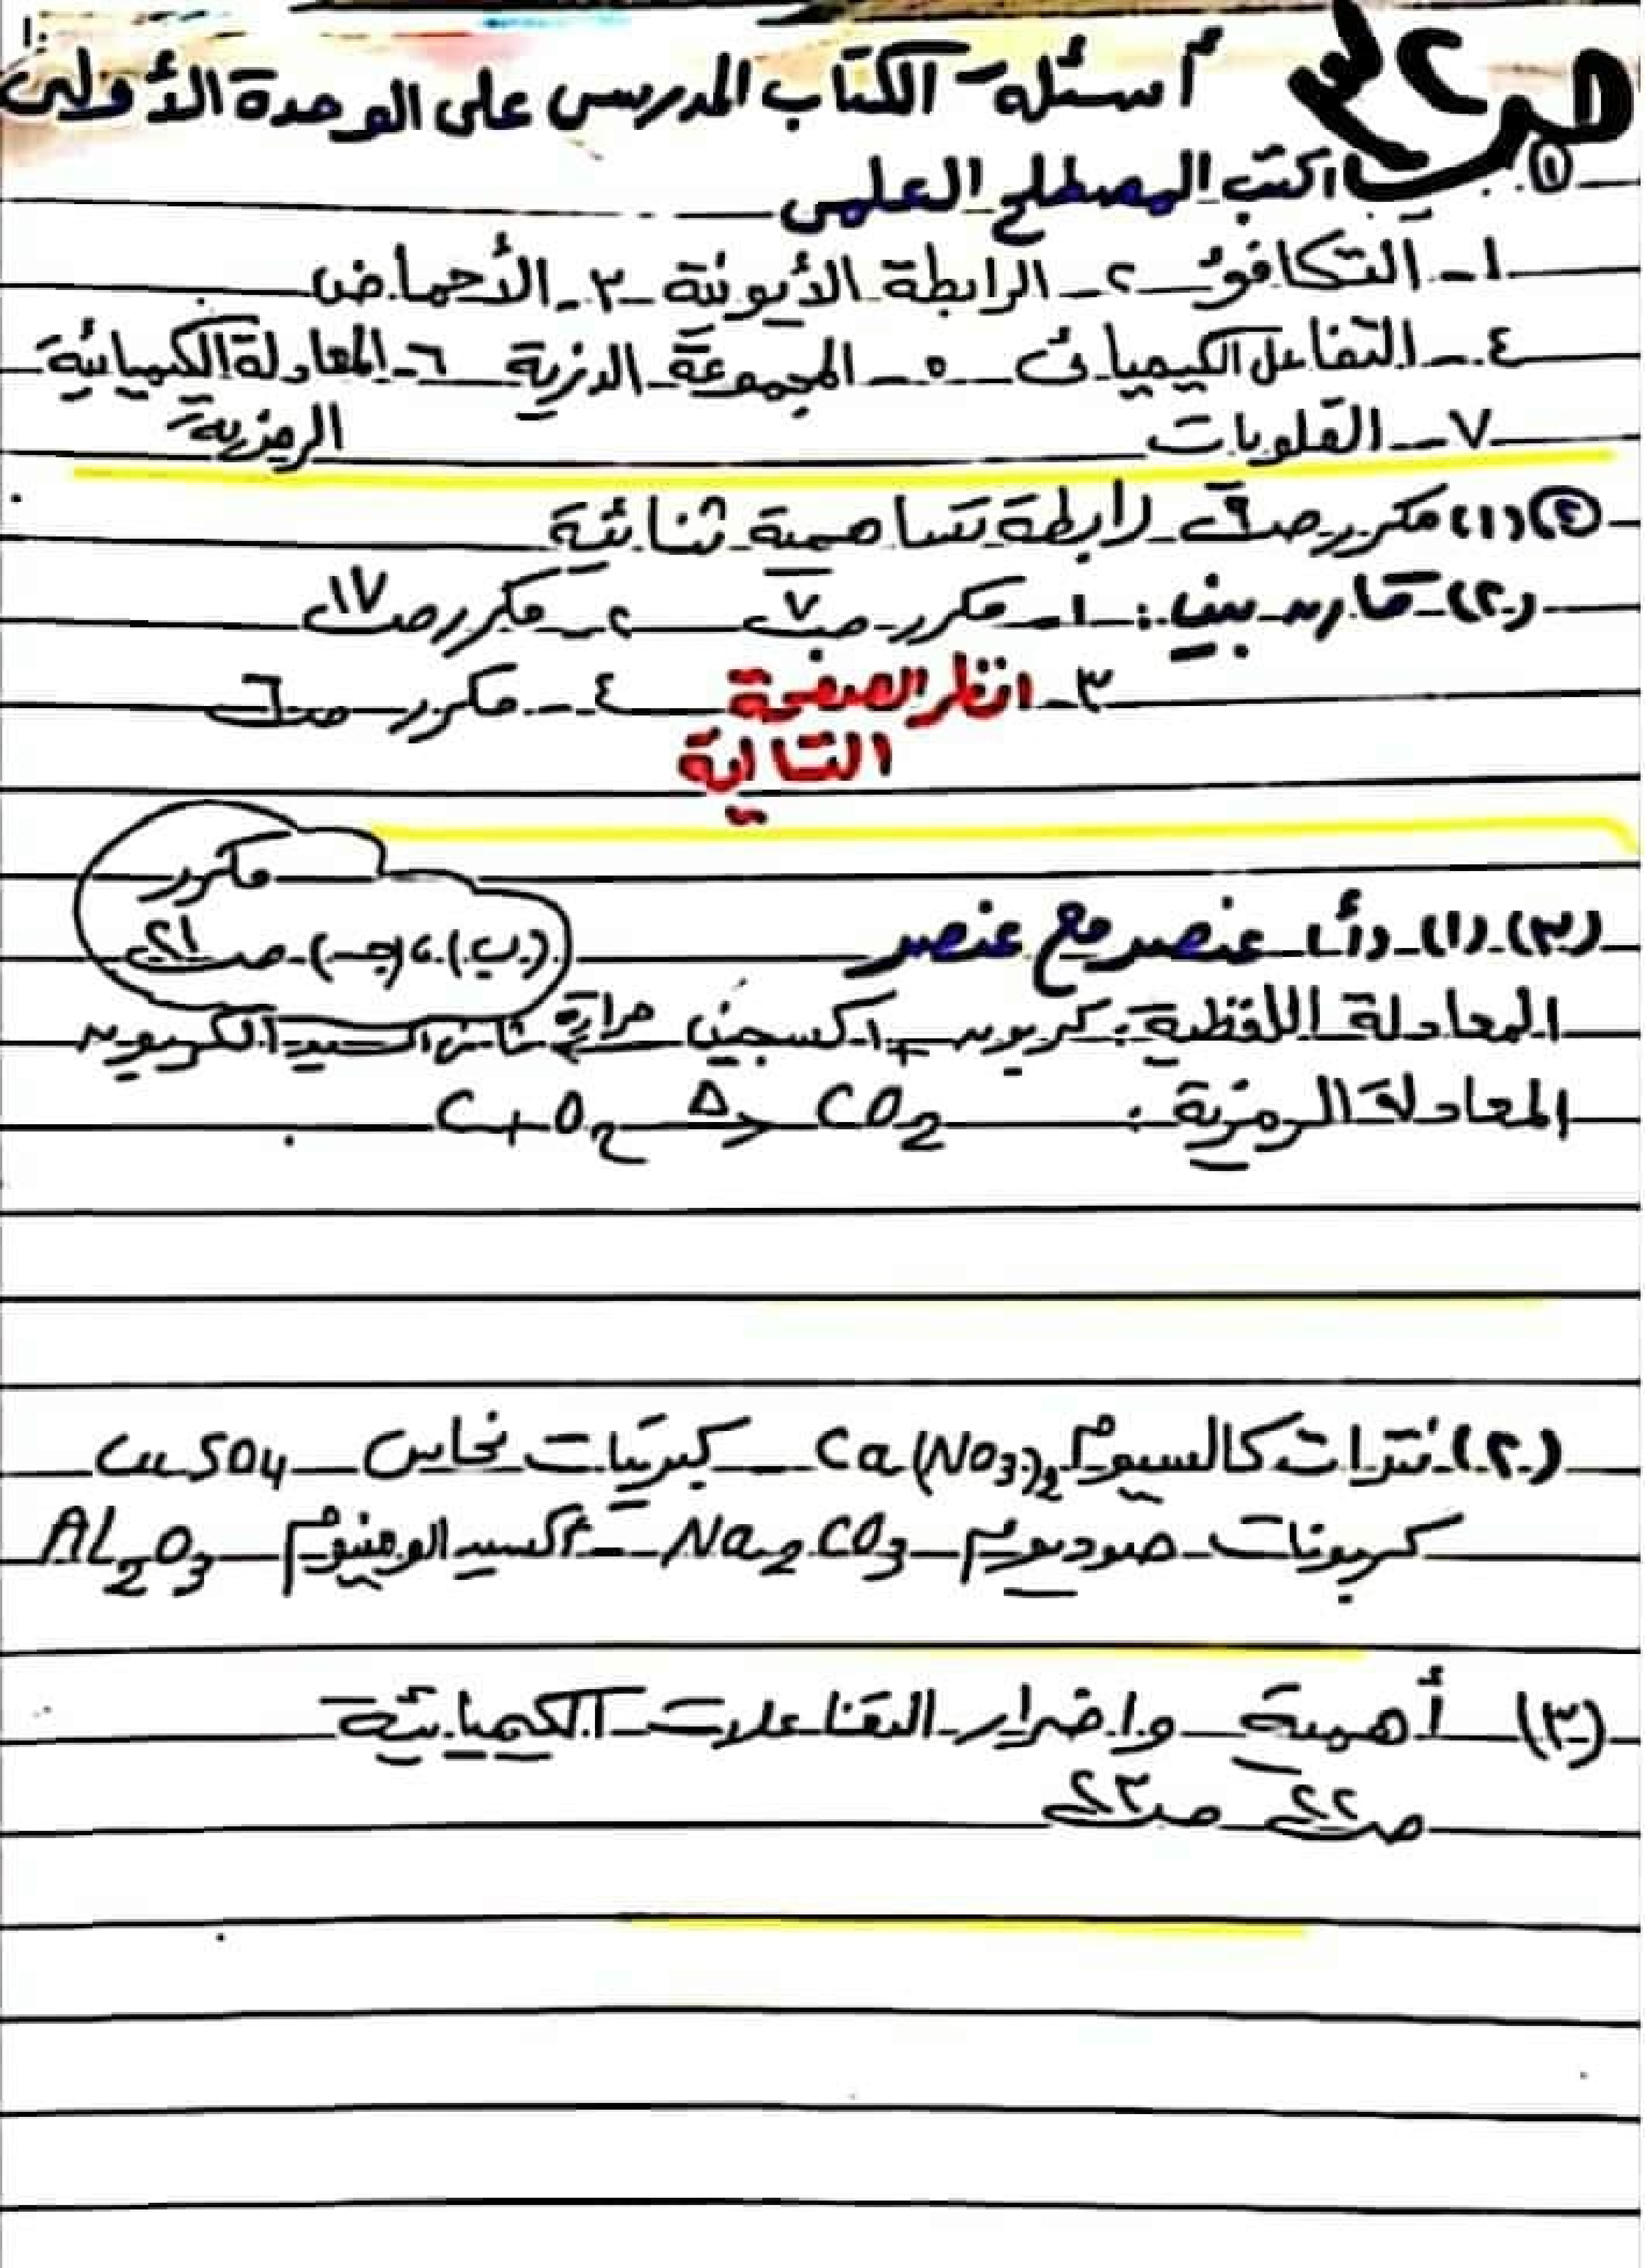 أسئلة الكتاب المدرسى على الوحدة الأولى
① اكتب المصطلح العلمى
١- التكافؤ ٢- الرابطة الأيونية ٣- الأحماض
٤- التفاعل الكيميائى ٥- المجموعة الذرية ٦- المعادلة الكيميائية
٧- القلويات الرمزية
② (١) مكرر صـ ٩ رابطة تساهمية ثنائية
(٢) قارن بين: ١- مكرر صـ ٧ ٢- مكرر صـ ١٧
٣- انظر الصفحة ٤- مكرر صـ ٦
التالية
مكرر
(٣) (١) (أ) عنصر مع عنصر (ب)، (جـ) صـ ٢١
المعادلة اللفظية: كربون + اكسجين حرارة ثانى اكسيد الكربون
المعادلة الرمزية: C + O2 Δ> CO2
(٢) نترات كالسيوم Ca(NO3)2 كبريتات نحاس CuSO4
كربونات صوديوم Na2CO3 - اكسيد الومنيوم AL2O3
(٣) أهمية واضرار التفاعلات الكيميائية
صـ ٢٢ صـ ٢٣